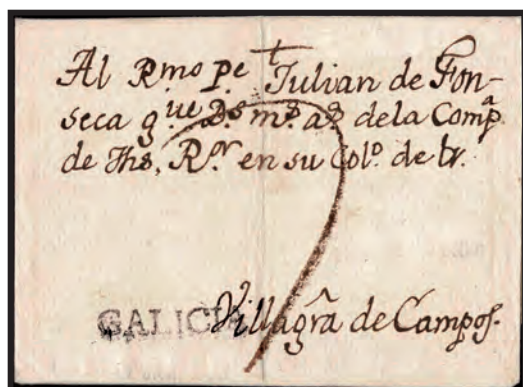 Al R.mo P.e Julian de Fon-
seca q.ue D.s m.s a.s dela Comp.a
de Jhs, R.or en su Col.o de
GALICIA Villagra de Campos.